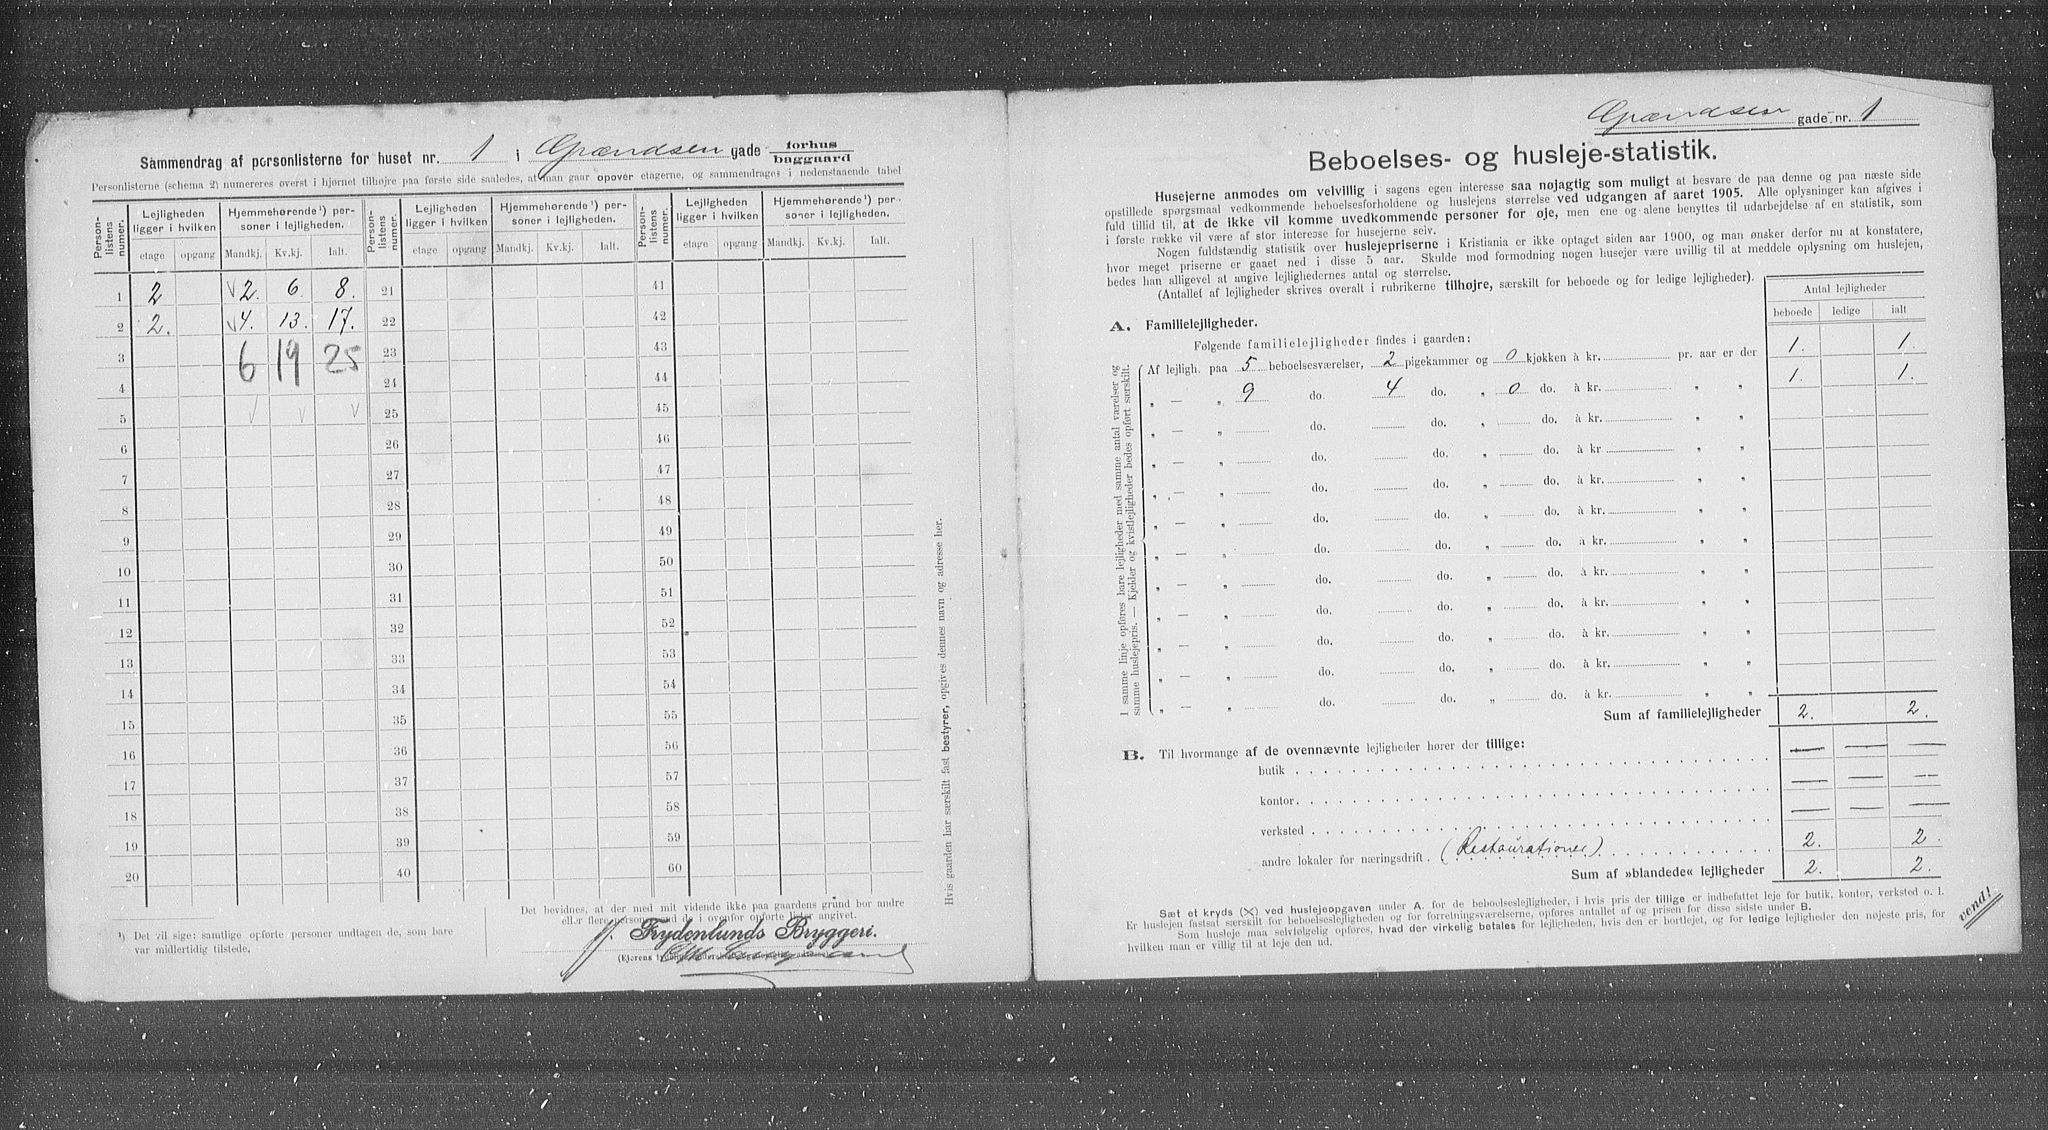 Sammendrag af personlisterne for huset nr. 1 i Grændsen gade forhus baggaard
Personlisterne (schema 2) numereres øverst i hjørnet tilhøjre paa første side saaledes, at man gaar opover etagerne, og sammendrages i nedenstaaende tabel
Person-listens numer. Lejligheden ligger i hvilken Hjemmehørende¹) personer i lejligheden. Person-listens numer. Lejligheden ligger i hvilken Hjemmehørende¹) personer i lejligheden. Person-listens numer. Lejligheden ligger i hvilken Hjemmehørende¹) personer i lejligheden.
etage opgang Mandkj. Kv.kj. Ialt. etage opgang Mandkj. Kv.kj. Ialt. etage opgang Mandkj. Kv.kj. Ialt.
1 2 √2. 6. 8. 21 41
2 2. √4. 13. 17. 22 42
3 6 19 25 23 43
4 24 44
5 √ √ √ 25 45
6 26 46
7 27 47
8 28 48
9 29 49
10 30 50
11 31 51
12 32 52
13 33 53
14 34 54
15 35 55
16 36 56
17 37 57
18 38 58
19 39 59
20 40 60
¹) Det vil sige: samtlige opførte personer undtagen de, som bare
var midlertidig tilstede.
Det bevidnes, at der med mit vidende ikke paa gaardens grund bor andre
eller flere personer end de i ovenfor opførte lister angivet.
Frydenlunds Bryggeri.
(Ejerens
Hvis gaarden har særskilt fast bestyrer, opgives dennes navn og adresse her.
Grændsen gade nr. 1
Beboelses- og husleje-statistik.
Husejerne anmodes om velvillig i sagens egen interesse saa nøjagtig som muligt at besvare de paa denne og paa næste side
opstillede spørgsmaal vedkommende beboelsesforholdene og huslejens størrelse ved udgangen af aaret 1905. Alle oplysninger kan afgives i
fuld tillid til, at de ikke vil komme uvedkommende personer for øje, men ene og alene benyttes til udarbejdelse af en statistik, som
i første række vil være af stor interesse for husejerne selv.
Nogen fuldstændig statistik over huslejepriserne i Kristiania er ikke optaget siden aar 1900, og man ønsker derfor nu at konstatere,
hvor meget priserne er gaaet ned i disse 5 aar. Skulde mod formodning nogen husejer være uvillig til at meddele oplysning om huslejen,
bedes han alligevel at angive lejlighedernes antal og størrelse.
(Antallet af lejligheder skrives overalt i rubrikerne tilhøjre, særskilt for beboede og for ledige lejligheder).
Antal lejligheder
beboede ledige ialt
A. Familielejligheder.
Følgende familielejligheder findes i gaarden:
Af lejligh. paa 5 beboelsesværelser, 2 pigekammer og 0 kjøkken à kr. pr. aar er der 1. 1.
„ — „ 9 do. 4 do. „ 0 do. à kr. „ „ 1. 1.
„ — „ do. do. „ do. à kr. „ „
„ — „ do. do. „ do. à kr. „ „
„ — „ do. do. „ do. à kr. „ „
„ — „ do. do. „ do. à kr. „ „
„ — „ do. do. „ do. à kr. „ „
„ — „ do. do. „ do. à kr. „ „
„ — „ do. do. „ do. à kr. „ „
„ — „ do. do. „ do. à kr. „ „
„ — „ do. do. „ do. à kr. „ „
„ — „ do. do. „ do. à kr. „ „
I samme linje opføres bare lejligheder med samme antal værelser og
samme huslejepris. — Kjelder og kvistlejligheder bedes opført særskilt.
Sum af familielejligheder 2. 2.
B. Til hvormange af de ovennævnte lejligheder hører der tillige:
butik — — —
kontor — — —
verksted — — —
andre lokaler for næringsdrift. (Restaurationer) 2. 2.
Sum af »blandede« lejligheder 2. 2.
Sæt et kryds (X) ved huslejeopgaven under A. for de beboelseslejligheder, i hvis pris der tillige er indbefattet leje for butik, kontor, verksted o. l.
Er huslejen fastsat særskilt for beboelseslejligheden og for forretningsværelserne, opføres antallet af og prisen for disse sidste under B.
Som husleje maa selvfølgelig opføres, hvad der virkelig betales for lejligheden, hvis den er bortlejet, og for ledige lejligheder den nøjeste pris, for
hvilken man er villig til at leje den ud.
vend!